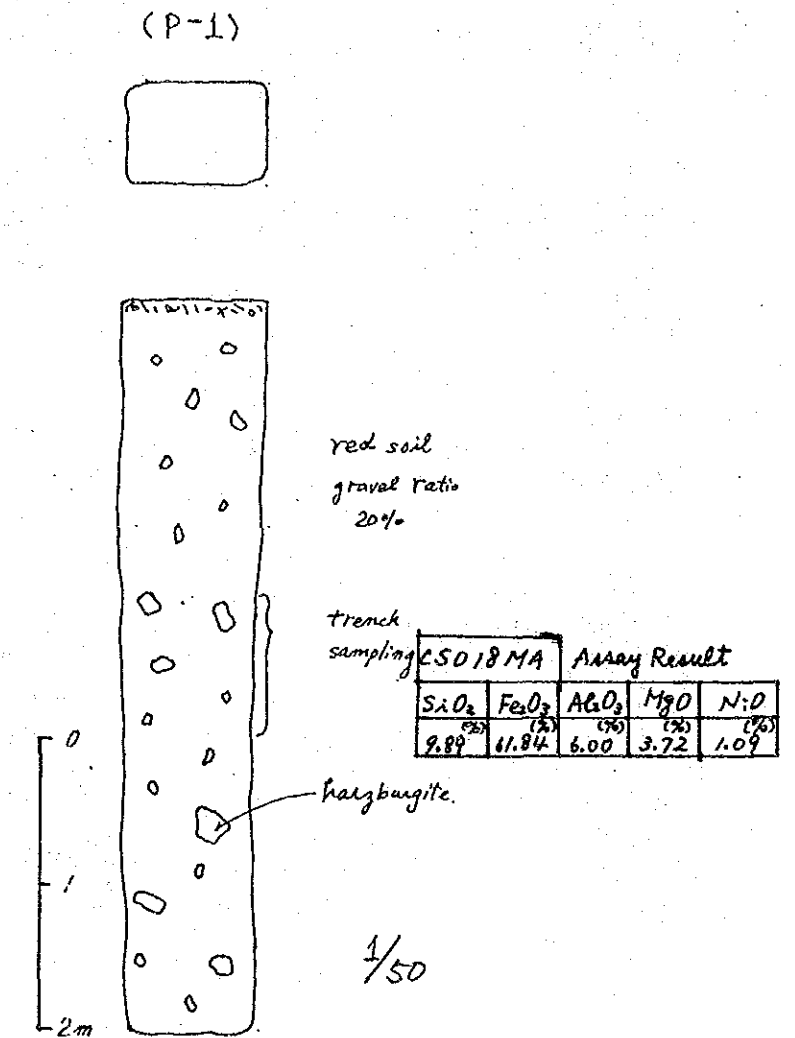 (P-1)
red soil
gravel ratio
20%
trench
sampling
CS018MA Assay Result
SiO₂ Fe₂O₃ Al₂O₃ MgO NiO
(%) (%) (%) (%) (%)
9.89 61.84 6.00 3.72 1.09
0
harzburgite.
1
1/50
2m